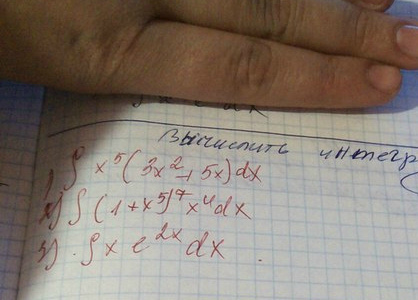 Вычислить интегр
1) ∫ x⁵(3x² + 5x)dx
2) ∫ (1+x⁵)⁷ x⁴dx
3) ∫ x e²ˣ dx